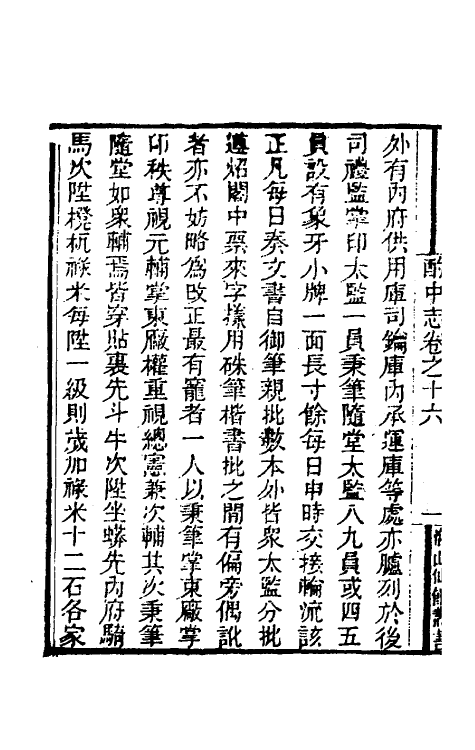 酌中志卷之十六
一
海山仙館叢書
外有內府供用庫司鑰庫內承運庫等處亦臚列於後
司禮監掌印太監一員秉筆隨堂太監八九員或四五
員設有象牙小牌一面長寸餘每日申時交接輪流該
正凡每日奏文書自御筆親批數本外皆眾太監分批
遵炤閣中票來字樣用硃筆楷書批之間有偏旁偶訛
者亦不妨略為改正最有寵者一人以秉筆掌東厰掌
印秩尊視元輔掌東厰權重視總憲兼次輔其次秉筆
隨堂如眾輔焉皆穿貼裏先斗牛次陞坐蟒先內府騎
馬次陞櫈杌祿米每陞一級則歲加祿米十二石各家